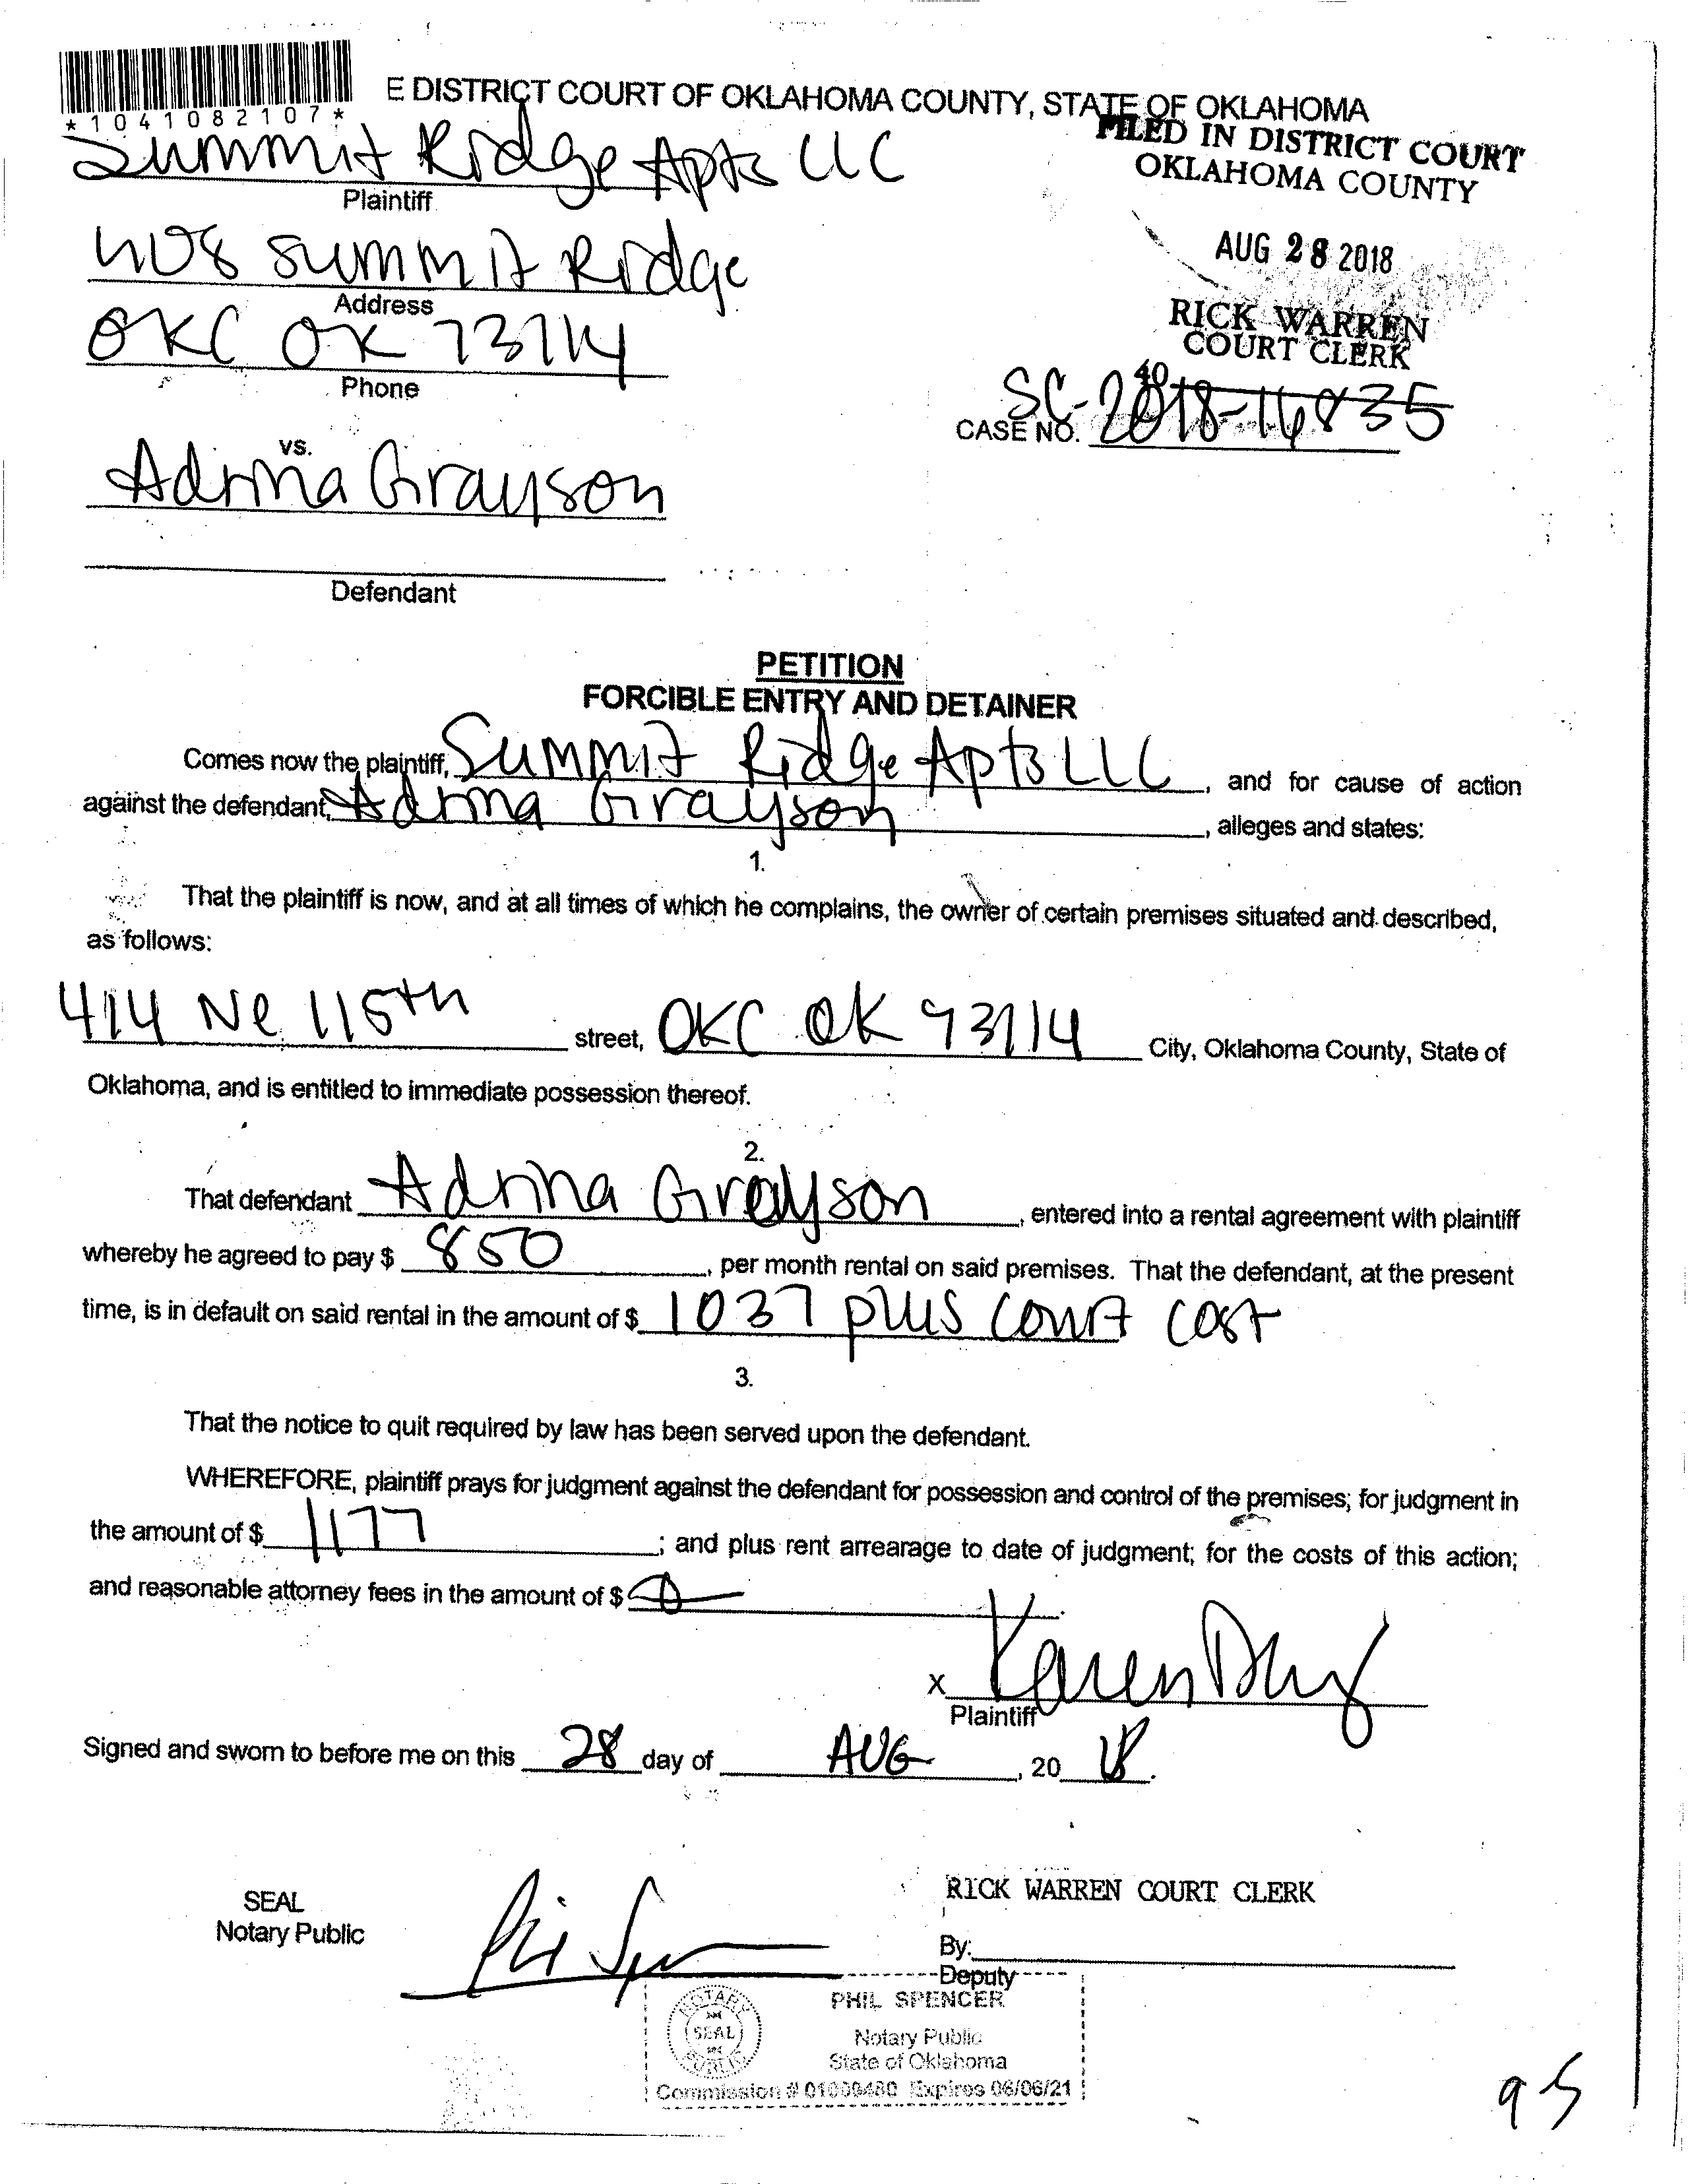 *1041082107*
E DISTRICT COURT OF OKLAHOMA COUNTY, STATE OF OKLAHOMA
FILED IN DISTRICT COURT
OKLAHOMA COUNTY
Summit Ridge Apts LLC
Plaintiff
AUG 28 2018
Summit Ridge
Address
RICK WARREN
COURT CLERK
OKC OK 73114
Phone
40
CASE NO. SC-2018-16835
vs.
Grayson
Defendant
PETITION
FORCIBLE ENTRY AND DETAINER
Comes now the plaintiff, Summit Ridge Apts LLC, and for cause of action
against the defendant, Grayson, alleges and states:
1.
That the plaintiff is now, and at all times of which he complains, the owner of certain premises situated and described,
as follows:
414 Ne 115th street, OKC OK 73114 City, Oklahoma County, State of
Oklahoma, and is entitled to immediate possession thereof.
2.
That defendant Grayson, entered into a rental agreement with plaintiff
whereby he agreed to pay $ 850, per month rental on said premises. That the defendant, at the present
time, is in default on said rental in the amount of $ 1037 plus court cost
3.
That the notice to quit required by law has been served upon the defendant.
WHEREFORE, plaintiff prays for judgment against the defendant for possession and control of the premises; for judgment in
the amount of $ 1177; and plus rent arrearage to date of judgment; for the costs of this action;
and reasonable attorney fees in the amount of $ 0.
x Karen
Plaintiff
Signed and sworn to before me on this 28 day of AUG, 20 18.
SEAL
Notary Public
RICK WARREN COURT CLERK
By:
Deputy
PHIL SPENCER
Notary Public
State of Oklahoma
Commission # 01009480 Expires 06/06/21
NOTARY SEAL PUBLIC
95